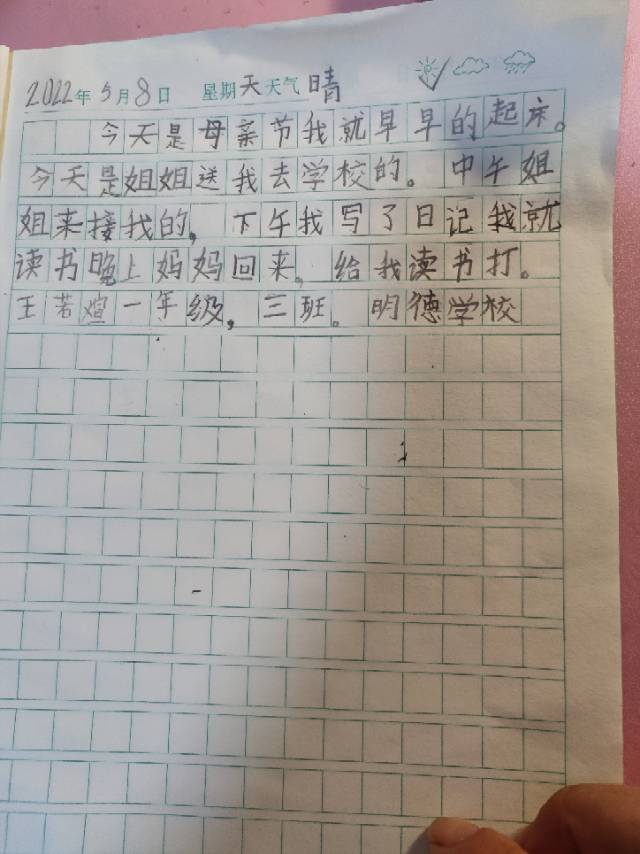 2022年5月8日 星期天天气晴
今天是母亲节我就早早的起床。
今天是姐姐送我去学校的。中午姐
姐来接我的,下午我写了日记我就
读书晚上妈妈回来,给我读书打。
王若煊一年级,三班。明德学校